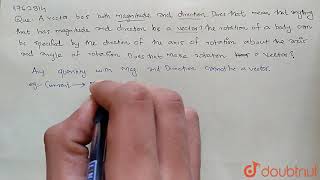 1762314
Que. A vector has both magnitude and direction. Does that mean that anything
that has magnitude and direction be a vector? The rotation of a body can
be specified by the direction of the axis of rotation about the axis
and angle of rotation. Does that make rotation a vector?
Any quantity with Mag. and Direction cannot be a vector.
eg- Current →
doubtnut